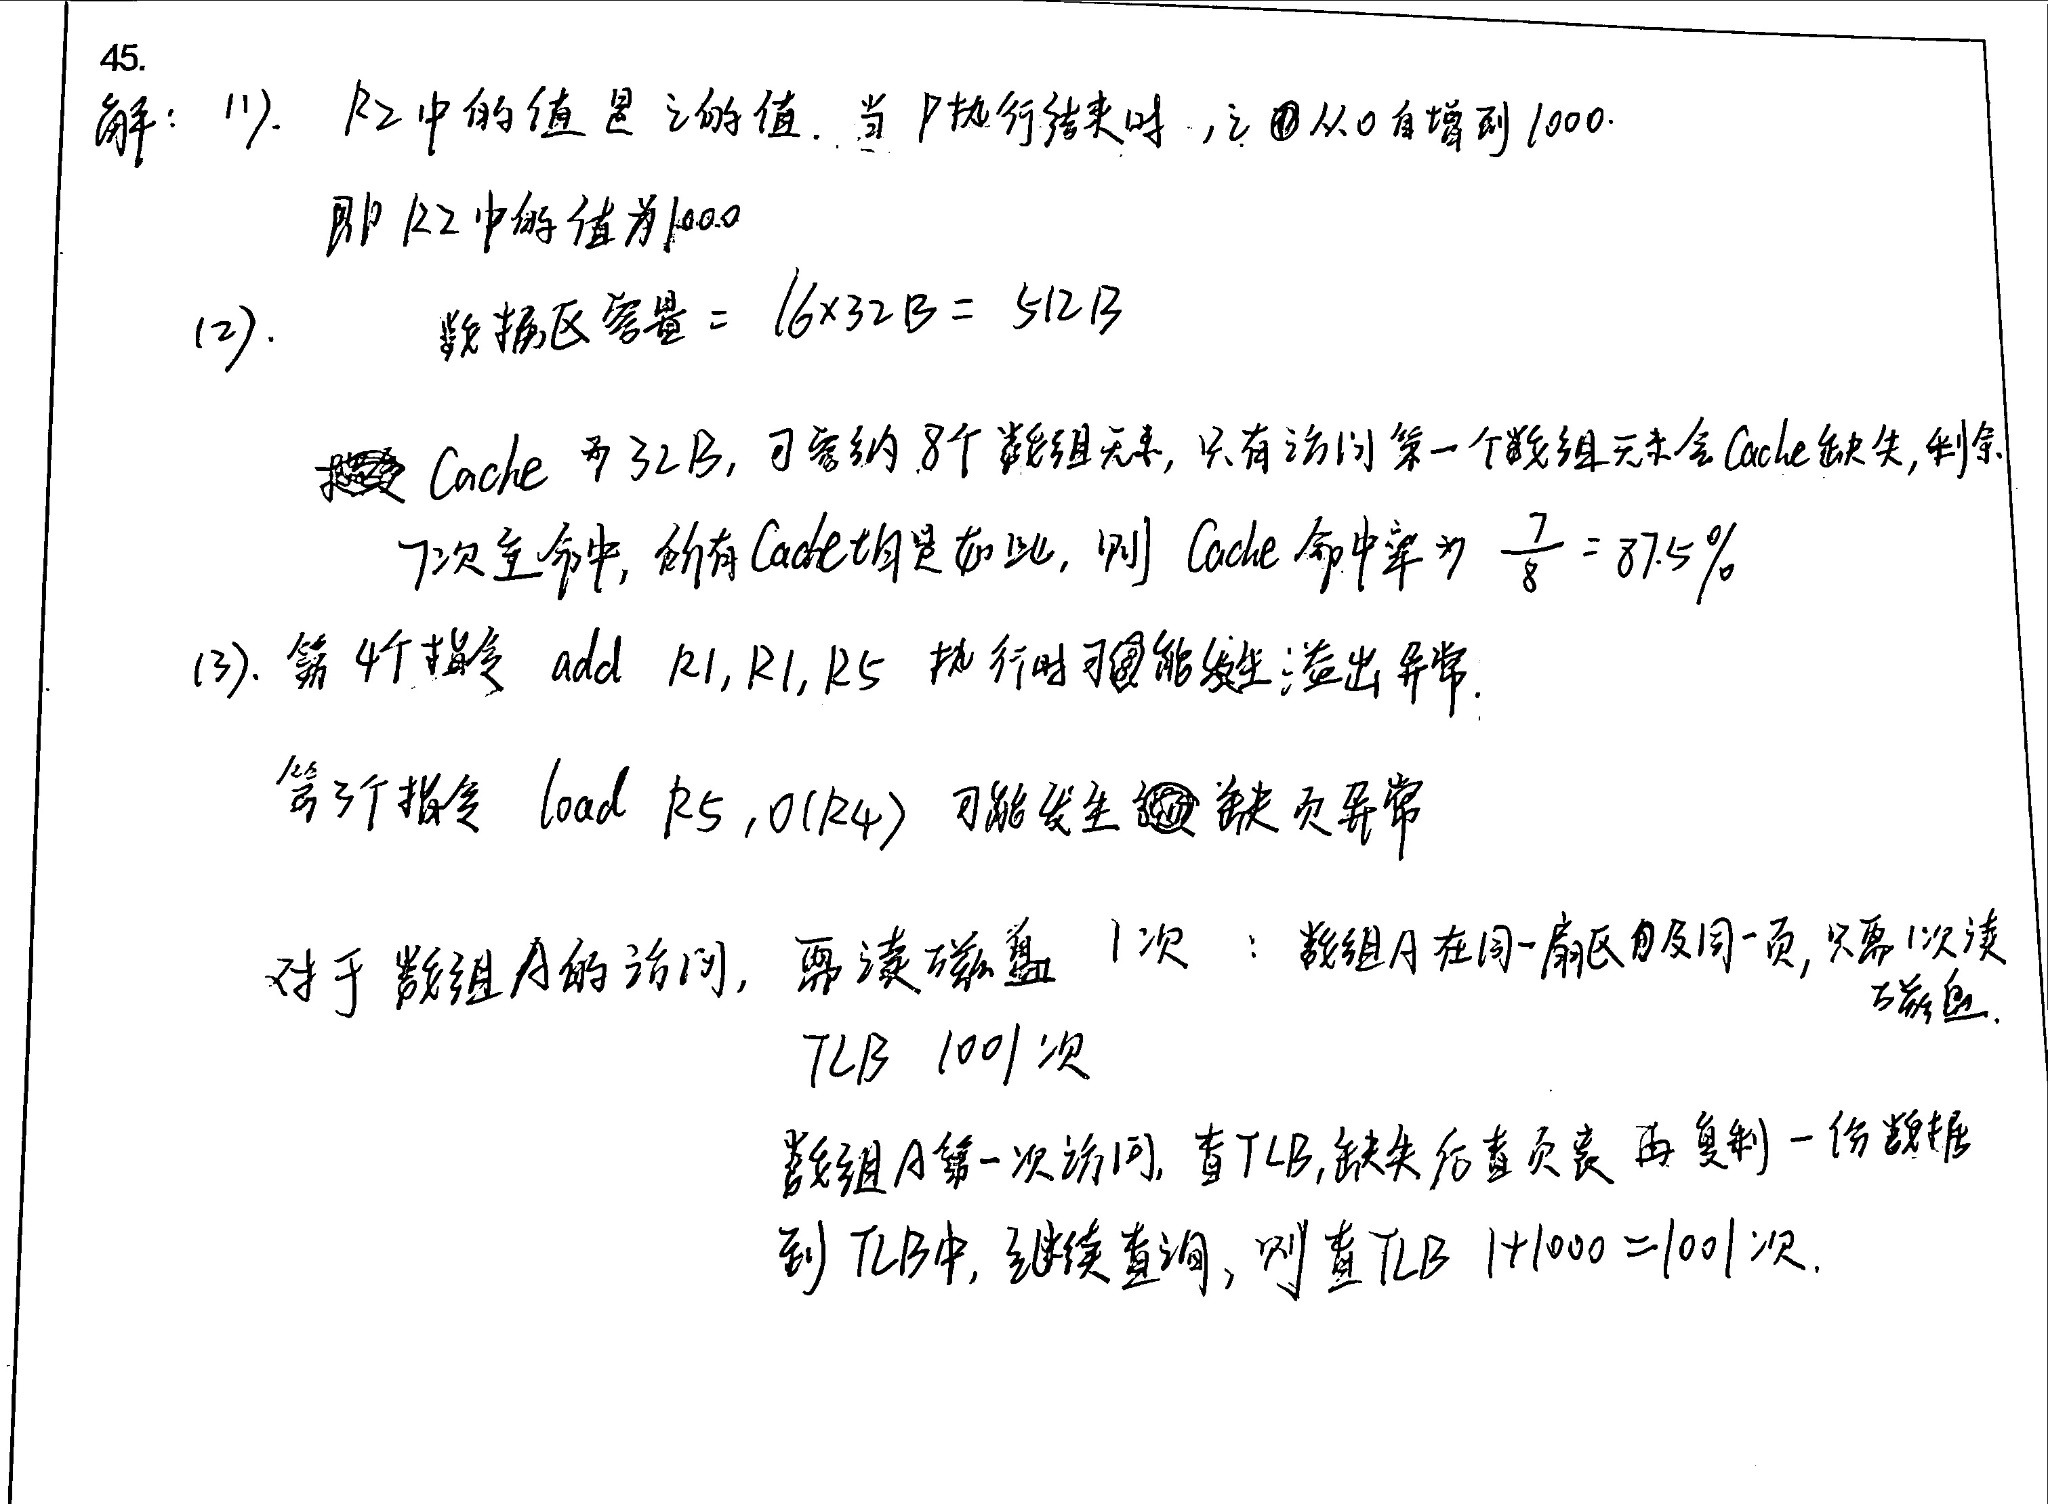 45.
解：(1). R2中的值是i的值. 当P执行结束时，i从0自增到1000.
即R2中的值为1000
(2). 数据区容量 = 16×32B = 512B
Cache 为32B, 可容纳8个数组元素, 只有访问第一个数组元素会Cache缺失, 剩余
7次全命中, 所有Cache均是如此, 则 Cache 命中率为 7/8 = 87.5%
(3). 第4个指令 add R1, R1, R5 执行时可能发生溢出异常.
第3个指令 load R5, 0(R4) 可能发生缺页异常
对于数组A的访问, 要读磁盘 1次 : 数组A在同一扇区及同一页, 只需1次读
磁盘.
TLB 1001次
数组A第一次访问, 查TLB, 缺失后查页表 再复制一份数据
到TLB中, 继续查询, 则查TLB 1+1000=1001次.